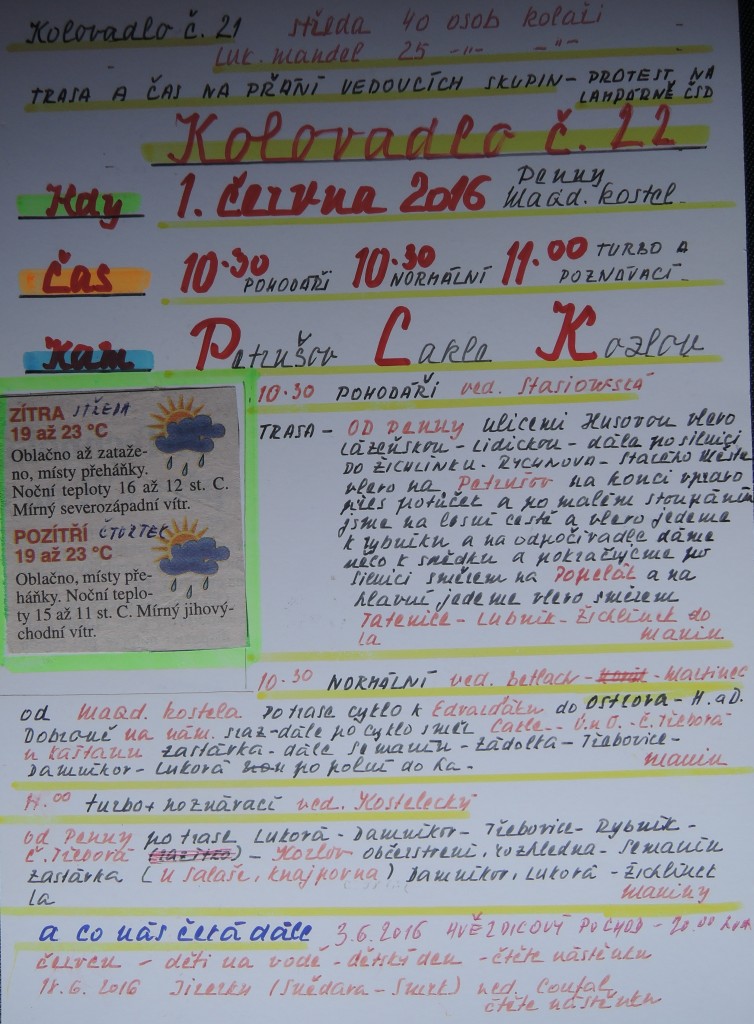 Kolovadlo č. 21 středa 40 osob koláči
Luk. mandel 25 -"- -"-
TRASA A ČAS NA PŘÁNÍ VEDOUCÍCH SKUPIN - PROTEST NA
LAMPÁRNĚ ČSD
Kolovadlo č. 22
Kdy 1. června 2016 Penny
Maád. kostel
Čas 10.30 POHODÁŘI 10.30 NORMÁLNÍ 11.00 TURBO A
POZNÁVACÍ
Kam Petrušov Cakle Kozlov
10.30 POHODÁŘI ved. Stasiowská
TRASA - OD Penny ulicemi Husovou vlevo
Lázeňskou - Lidickou - dále po silnici
DO ŽICHLÍNKU. RYCHNOVA - Starého Města
vlevo na Petrušov na konci vpravo
přes potůček a po malém stoupáním
jsme na lesní cestě a vlevo jedeme
k rybníku a na odpočívadle dáme
něco k snědku a pokračujeme po
silnici směrem na Popelák a na
hlavní jedeme vlevo směrem
Tatenice - Lubník - Žichlínek do
La maniny
ZÍTRA STŘEDA
19 až 23 °C
Oblačno až zataže-
no, místy přeháňky.
Noční teploty 16 až 12 st. C.
Mírný severozápadní vítr.
POZÍTŘÍ ČTVRTEK
19 až 23 °C
Oblačno, místy pře-
háňky. Noční teplo-
ty 15 až 11 st. C. Mírný jihový-
chodní vítr.
10.30 NORMÁLNÍ ved. betlach - Martinec
od Maád. kostela po trase cyklo k Edrasďáku do Ostrova - H. a D.
Dobrouč na nám. sraz - dále po cyklo směr Cakle - Ú.n.O. - Č. Třebová
u kaštanu zastávka - dále Semanín - Zádolka - Třebovice -
Damníkov - Luková po polní do La. maniny
11.00 turbo + poznávací ved. Kostelecký
od Penny po trase Luková - Damníkov - Třebovice - Rybník -
Č. Třebová - Kozlov občerstvení, rozhledna - Semanín
zastávka (u salaše, knajpovna) Damníkov, Luková - Žichlínek
La maniny
a co nás čeká dále 3.6.2016 HVĚZDICOVÝ POCHOD - 20.00 hod.
červen - děti na vodě - dětský den - čtěte nástěnku
18.6.2016 Jizerky (Smědava - Smrk) ved. Coufal
čtěte nástěnku